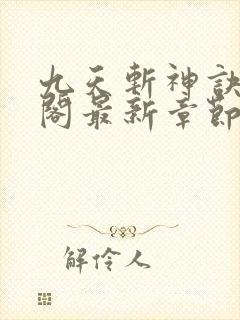 九天斬神訣
閣最新章節
解伶人